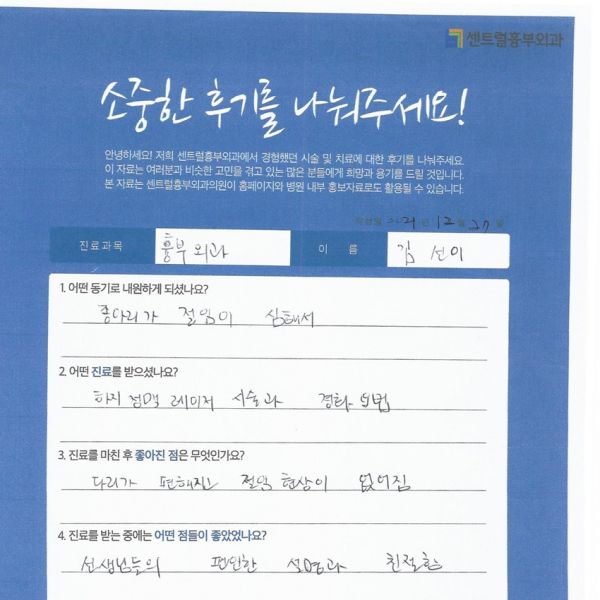 센트럴흉부외과
소중한 후기를 나눠주세요!
안녕하세요! 저희 센트럴흉부외과에서 경험했던 시술 및 치료에 대한 후기를 나눠주세요.
이 자료는 여러분과 비슷한 고민을 겪고 있는 많은 분들에게 희망과 용기를 드릴 것입니다.
본 자료는 센트럴흉부외과의원이 홈페이지와 병원 내부 홍보자료로도 활용될 수 있습니다.
작성일 2021년 12월 27일
진료과목 흉부외과 이 름 김선이
1. 어떤 동기로 내원하게 되셨나요?
종아리가 절임이 심해서
2. 어떤 진료를 받으셨나요?
하지 정맥 레이저 시술과 경화 요법
3. 진료를 마친 후 좋아진 점은 무엇인가요?
다리가 편해짐 절임 현상이 없어짐
4. 진료를 받는 중에는 어떤 점들이 좋았었나요?
선생님들의 편안한 설명과 친절함